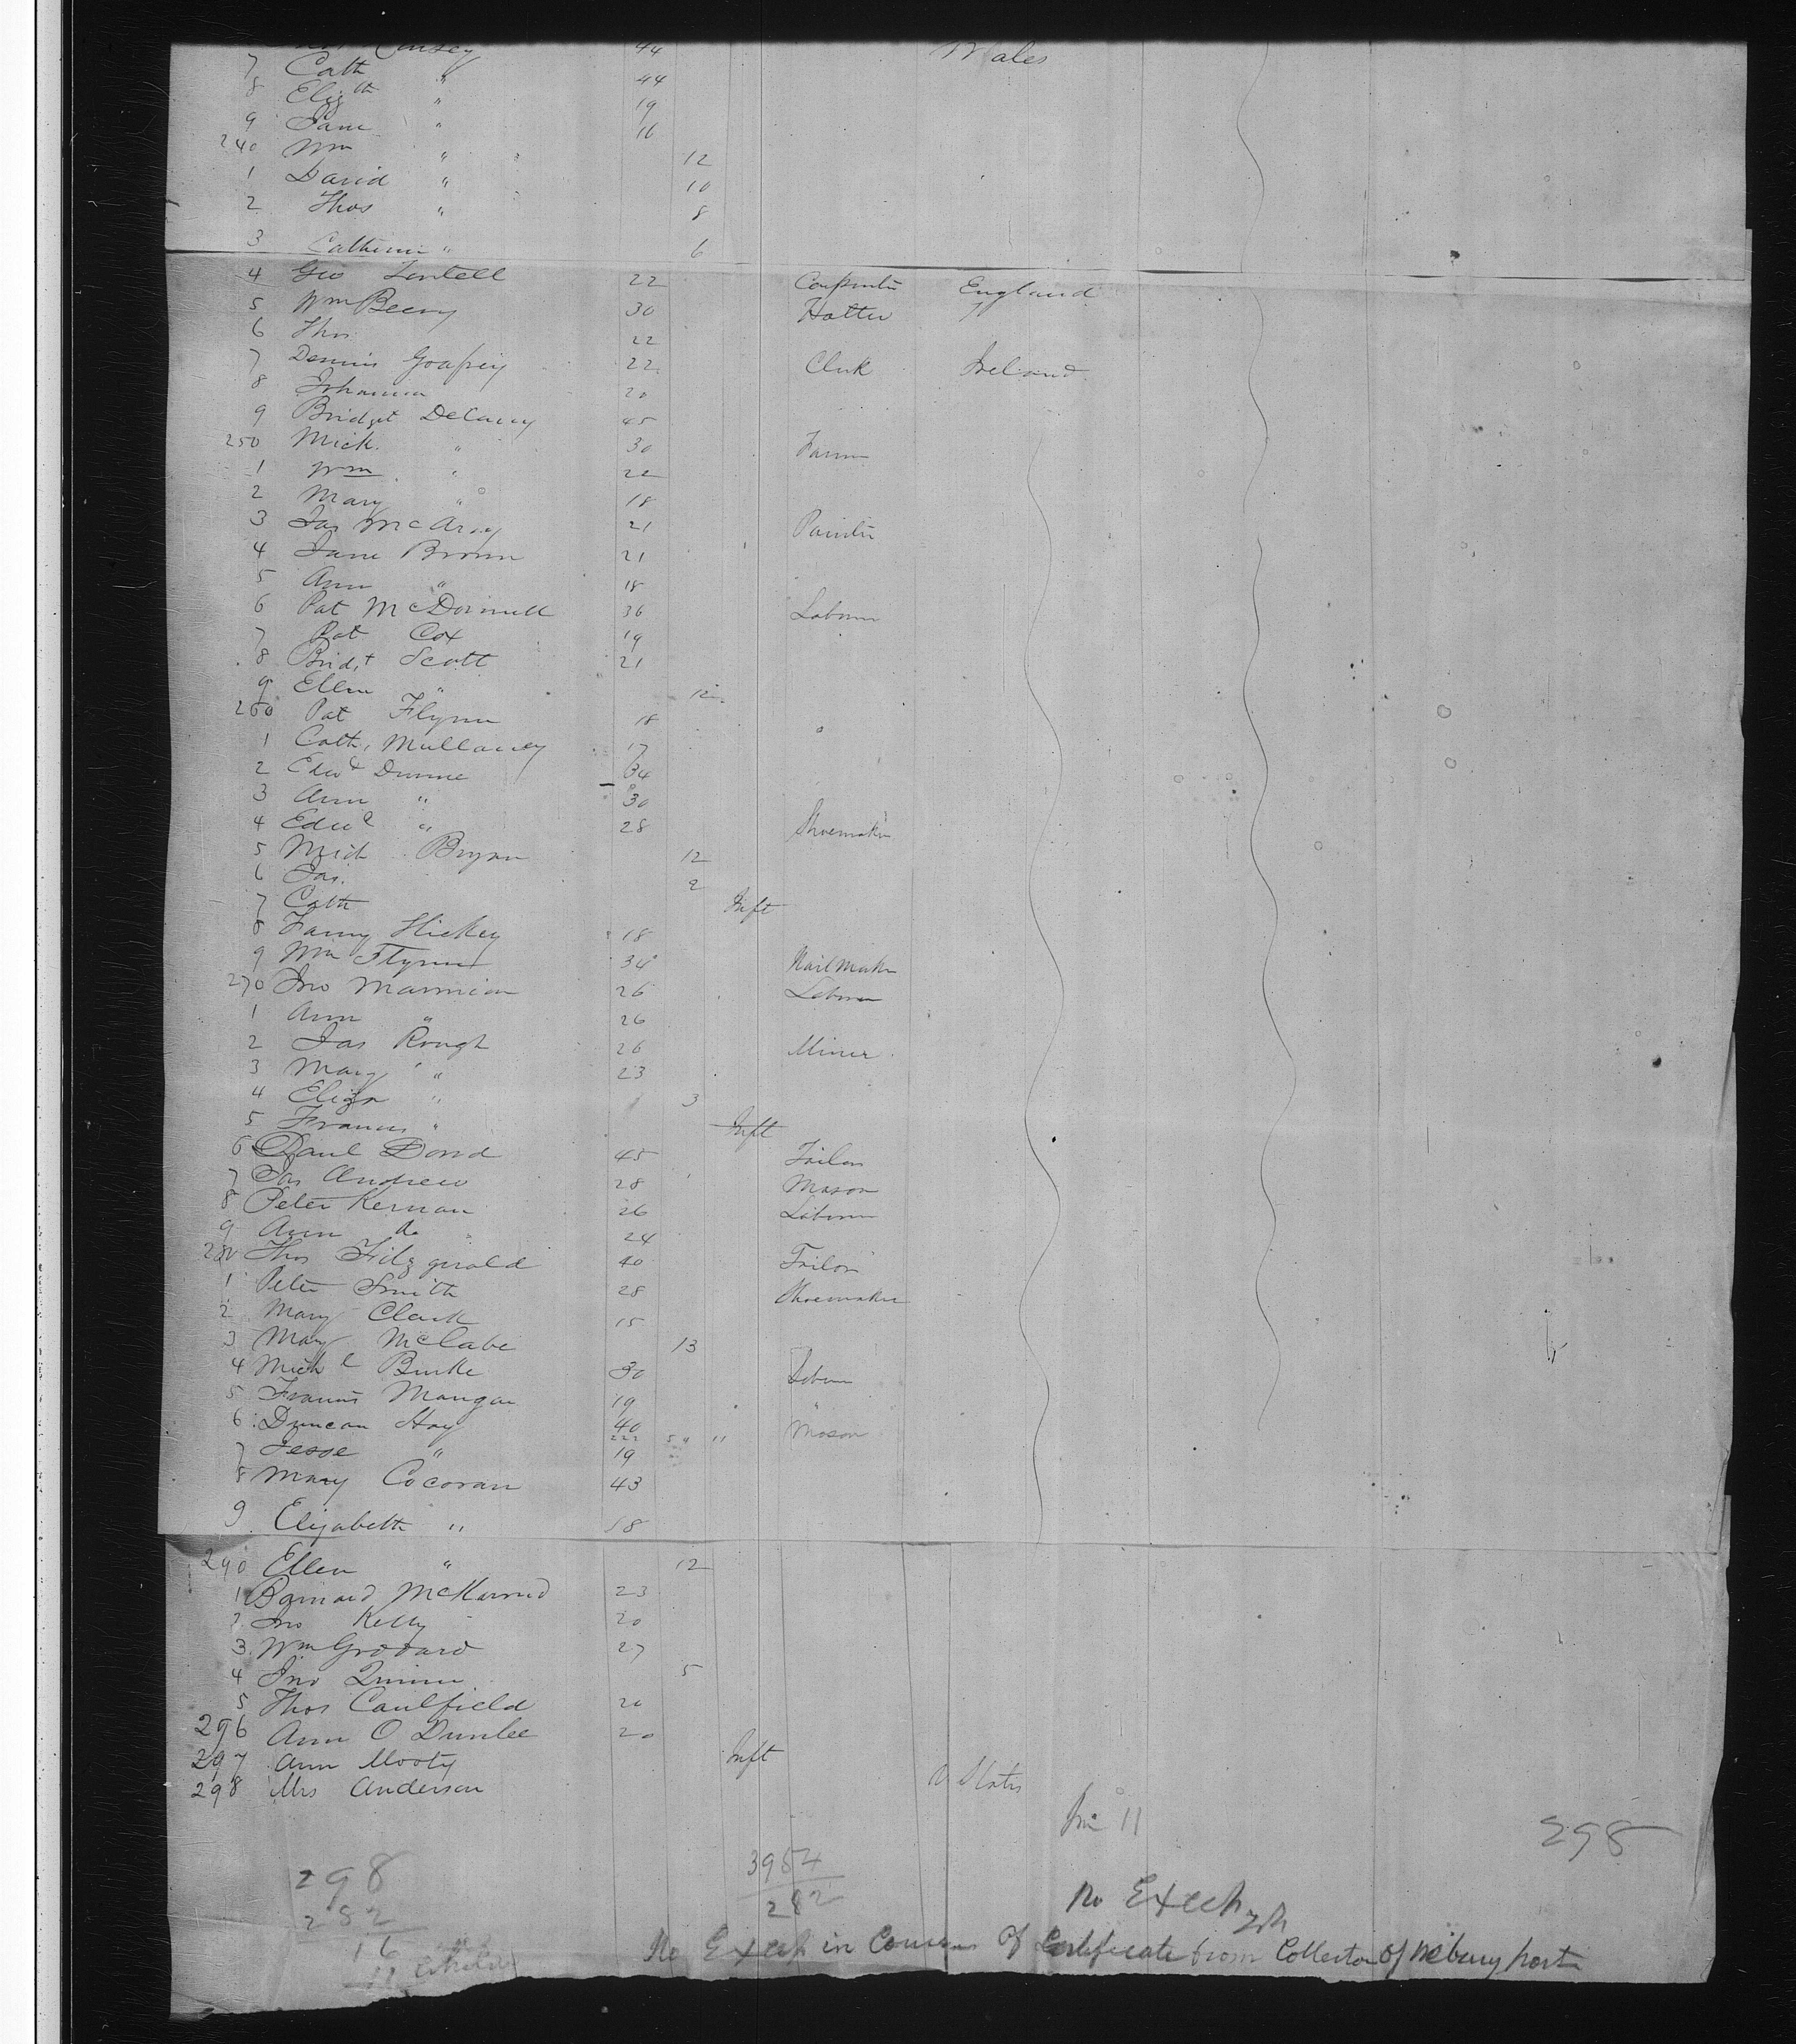 44 Wales
7 Cath " 44
8 Elizth " 19
9 Jane " 16
240 Wm " 12
1 David " 10
2 Thos " 8
3 Catherine " 6
4 Geo 22 Carpenter England
5 Wm Beeny 30 Hatter
6 Thos 22
7 Dennis Godfrey 22 Clerk Ireland
8 Johanna 20
9 Bridget Delaney 45
250 Mich. " 30 Farmer
1 Wm " 22
2 Mary " 18
3 Jas 21 Painter
4 Jane Brown 21
5 Ann " 18
6 Pat McDonnell 36 Laborer
7 Pat Cox 19
8 Bridt Scott 21
9 Ellen " 12
260 Pat Flynn 18 "
1 Cath. Mullaney 17
2 Edwd Dunne 34
3 Ann " 30
4 Edwd " 28 Shoemaker
5 Mich Bryan 12
6 Jas. 2
7 Cath Inft
8 Fanny Hickey 18
9 Wm Flynn 34 Nailmaker
270 Jno Mannion 26 Laborer
1 Ann " 26
2 Jas Rough 26 Miner
3 Mary " 23
4 Eliza " 3
5 Francis " Inft
6 45 Tailor
7 Jas Andrew 28 Mason
8 Peter Kernan 26 Laborer
9 Ann do 24
280 Thos Fitzgerald 40 Tailor
1 Peter Smith 28 Shoemaker
2 Mary Clark 15
3 Mary McCabe 13
4 Michl Burke 30 Laborer
5 Francis Mangan 19 "
6 Duncan Hay 40 Mason
7 Jesse " 19
8 Mary Cocoran 43
9 Elizabeth " 18
290 Ellen " 12
1 Barnard 23
2 Jno Kelly 20
3 Wm Goddard 27
4 Jno Quinn 5
5 Thos Caulfield 20
296 Ann O Dunlee 20
297 Ann Mooty Inft
298 Mrs Anderson U States
11
298
298
282
16
3954
282
No Excep
No Excep in Certificate from Collector of